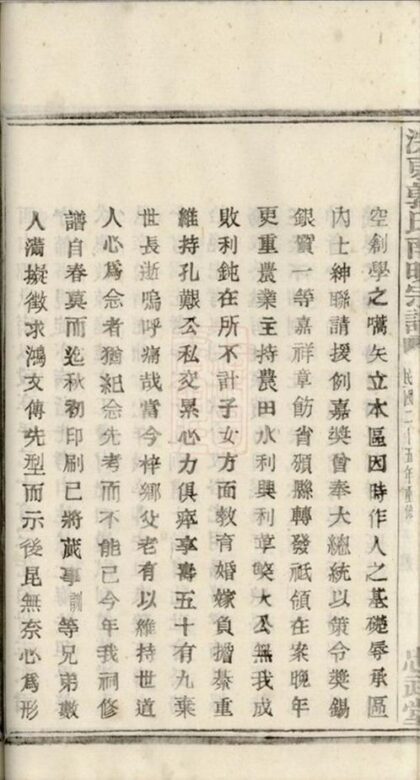 宗譜
忠武堂
空創學之嚆矢立本區因時作人之基礎辱承區
內士紳聯請援例嘉獎曾奉大總統以策令獎錫
銀質一等嘉祥章飭省頒縣轉發祗領在案晚年
更重農業主持農田水利興利革獘大公無我成
敗利鈍在所不計子女方面教育婚嫁負擔綦重
維持孔艱公私交累心力俱瘁享壽五十有九棄
世長逝嗚呼痛哉當今梓鄉父老有以維持世道
人心爲念者猶紀念先考而不能已今年我祠修
譜自春莫而迄秋初印刷已將蕆事訓等兄弟數
人滿擬徵求鴻文傳先型而示後昆無奈心爲形